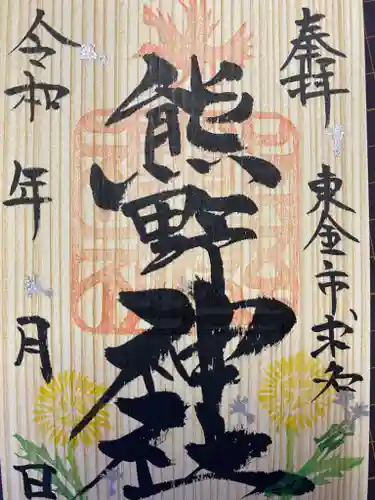 奉拝
東金市求名
熊野神社
令和 年 月 日